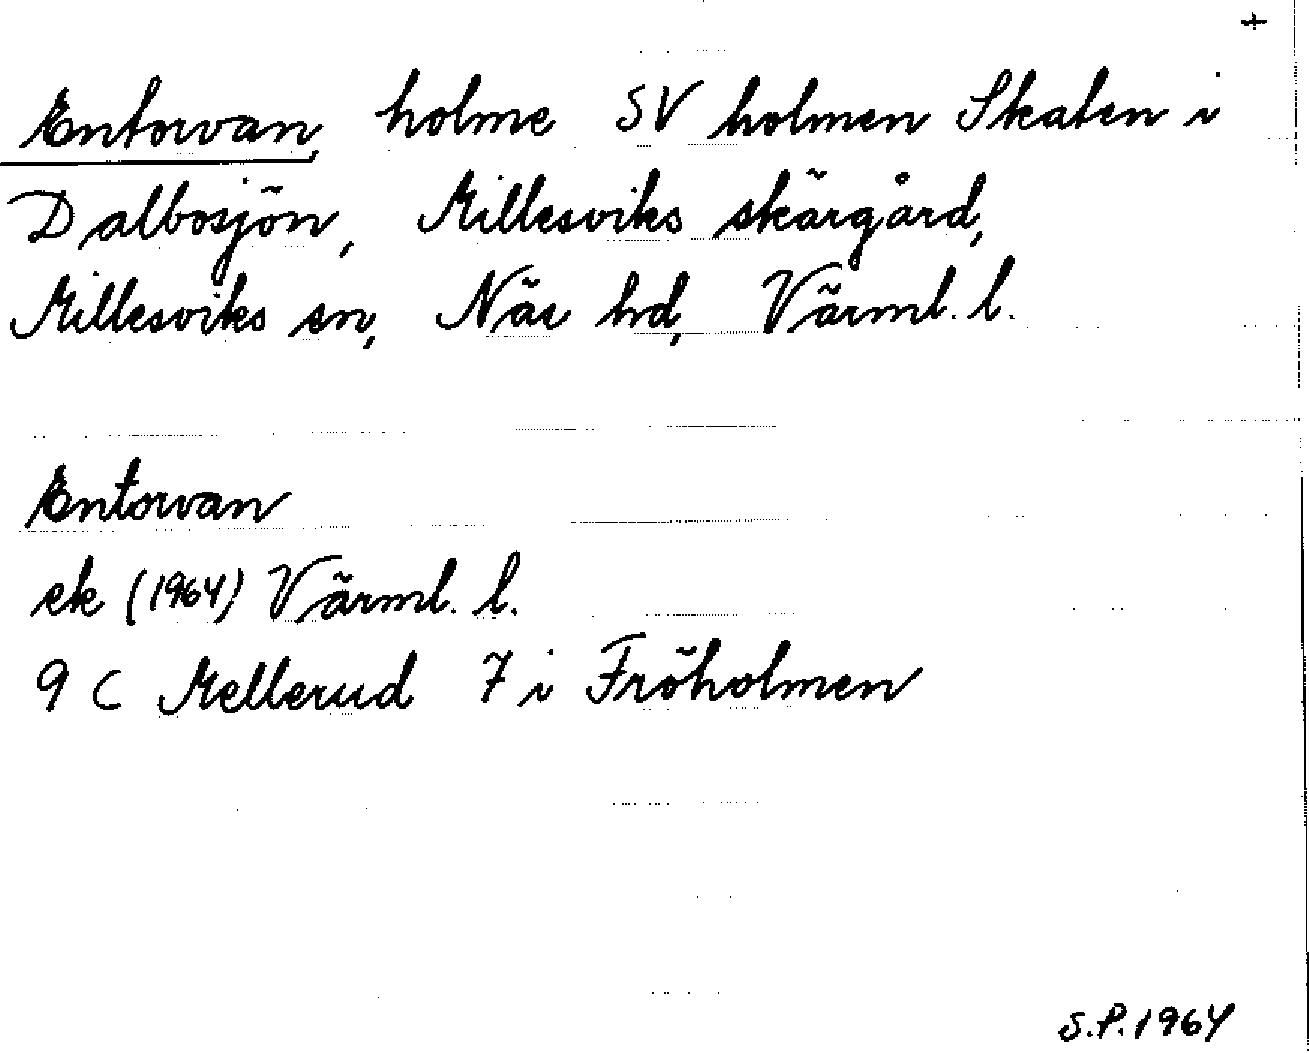 +
Entorvan, holme SV holmen Skaten i
Dalbosjön, Millesviks skärgård,
Millesviks sn, Näs hd, Värml. l.
Entorvan
ek (1964) Värml. l.
9 C Mellerud 7 i Fröholmen
S.P. 1964